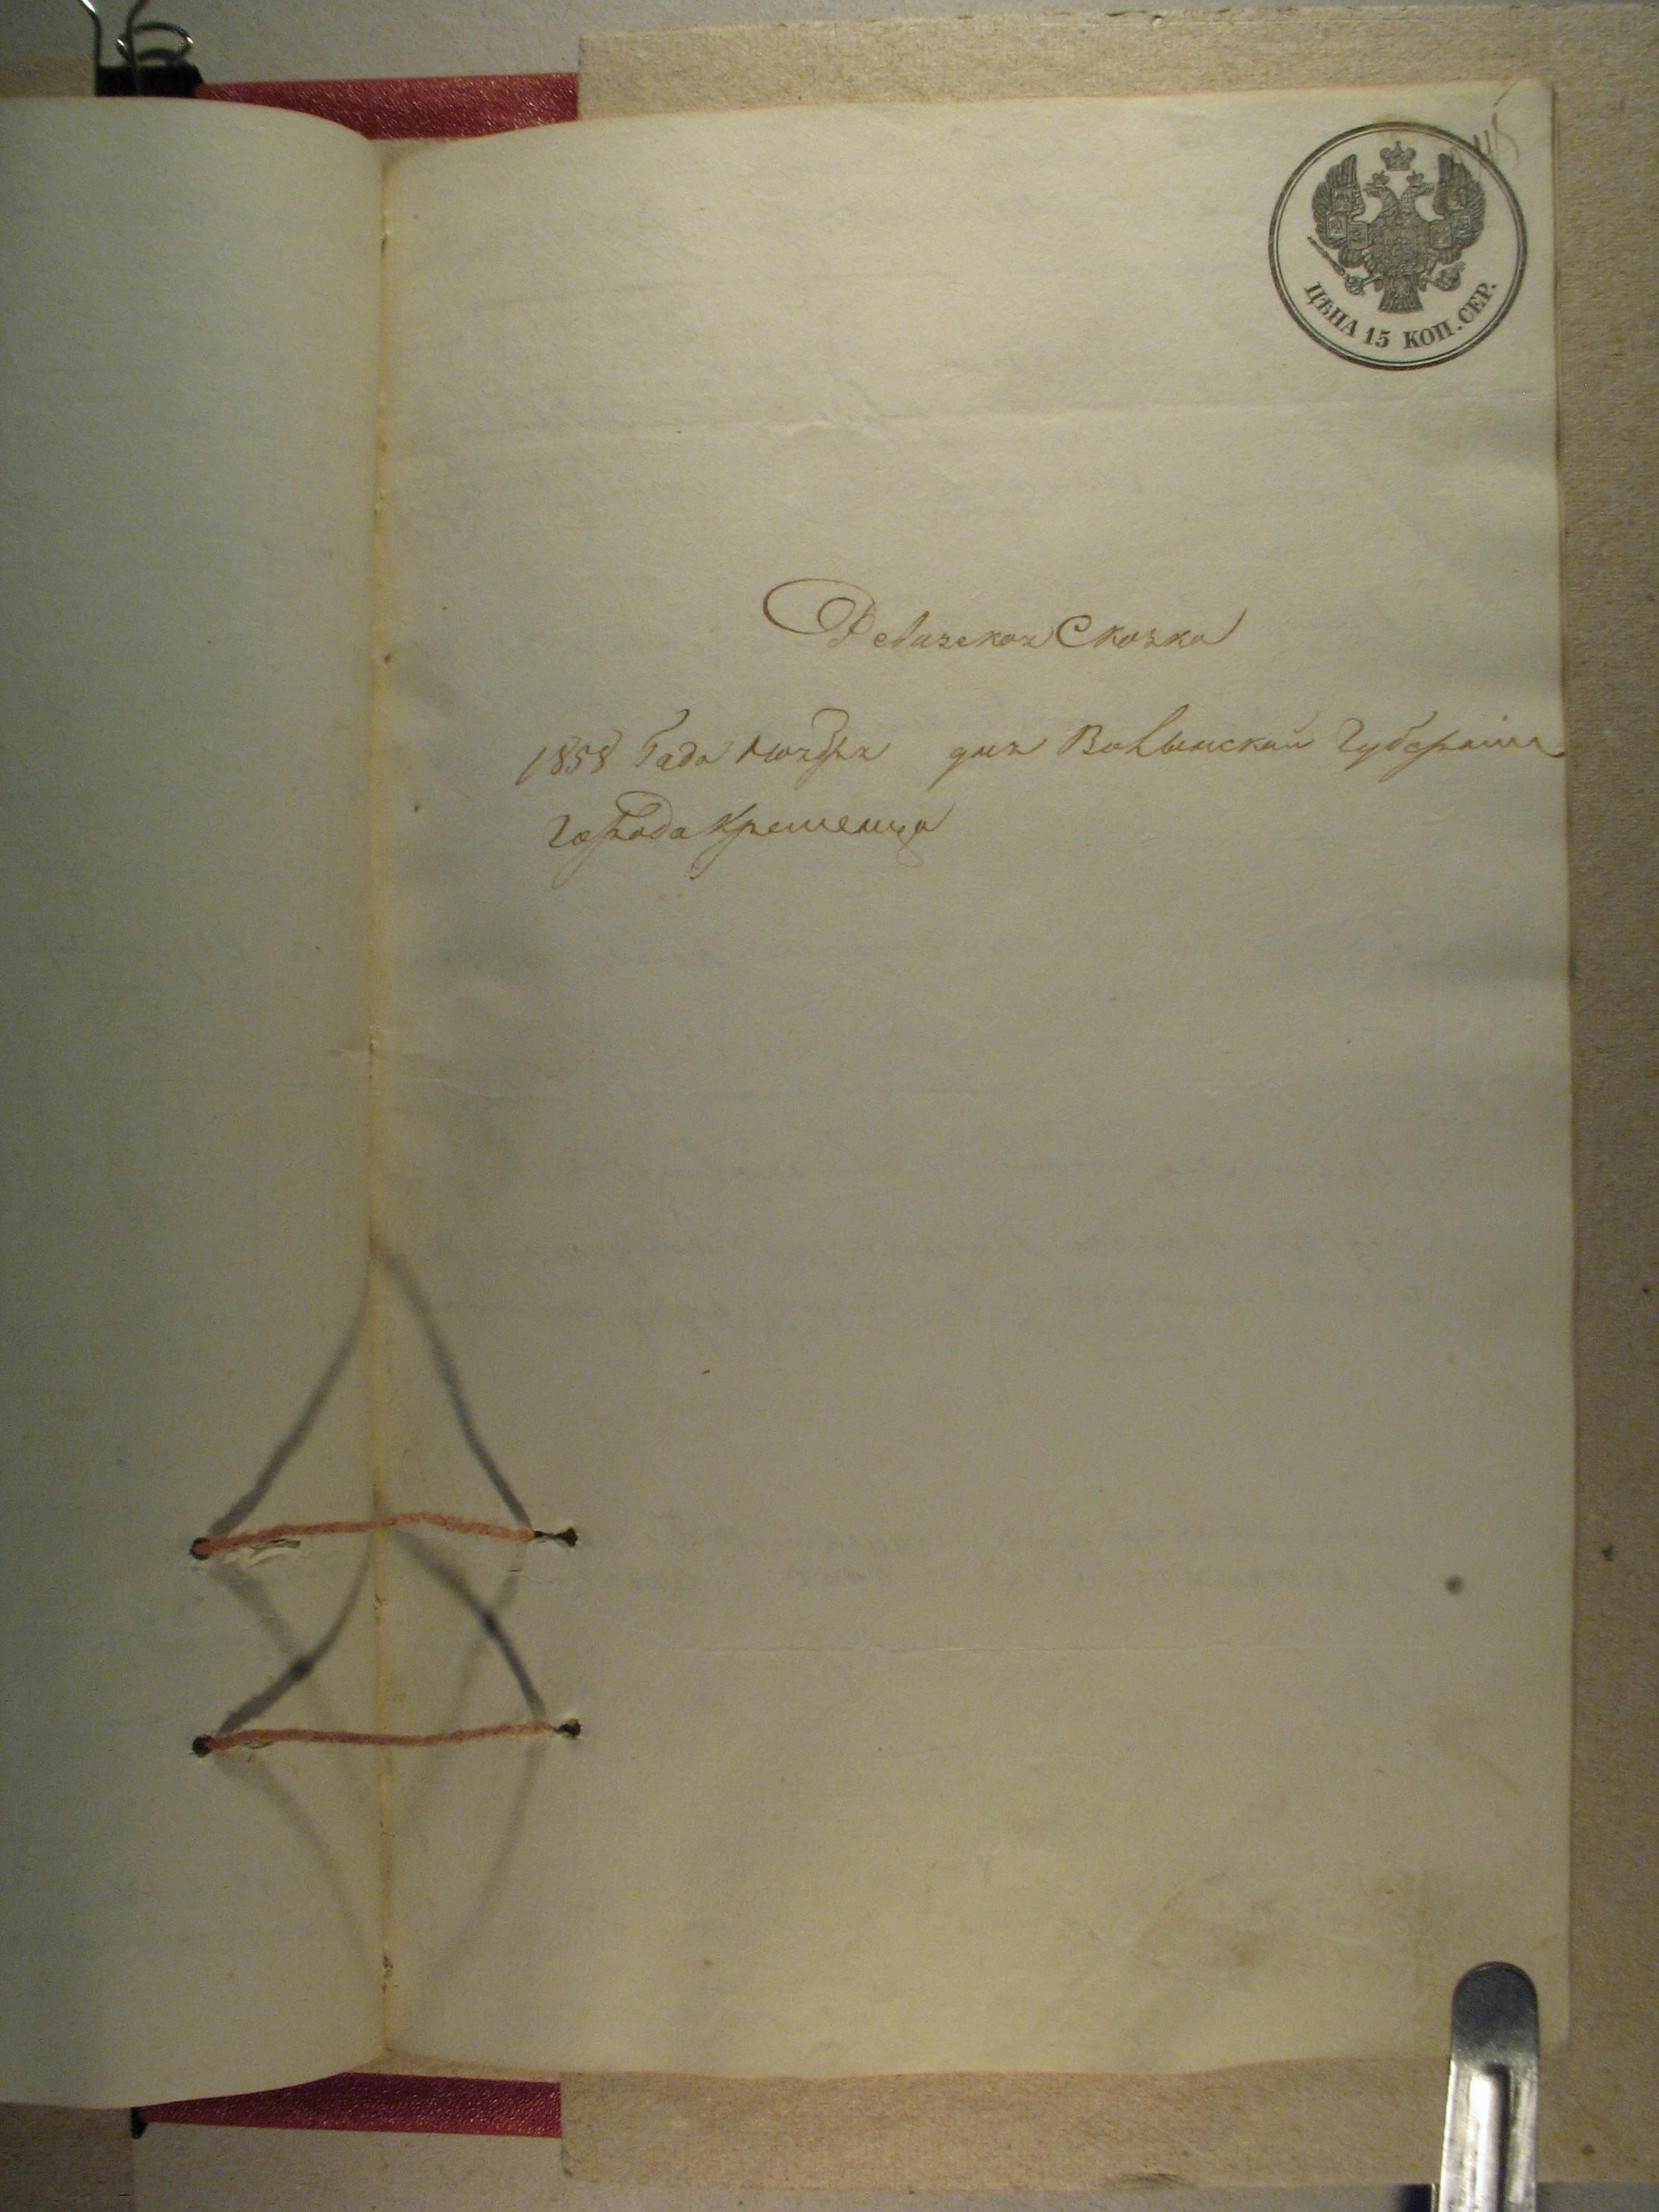 ЦѢНА 15 КОП. СЕР.
Ревизская Сказка
1858 Года Ноября дня Волынской Губернии
Города Кременца